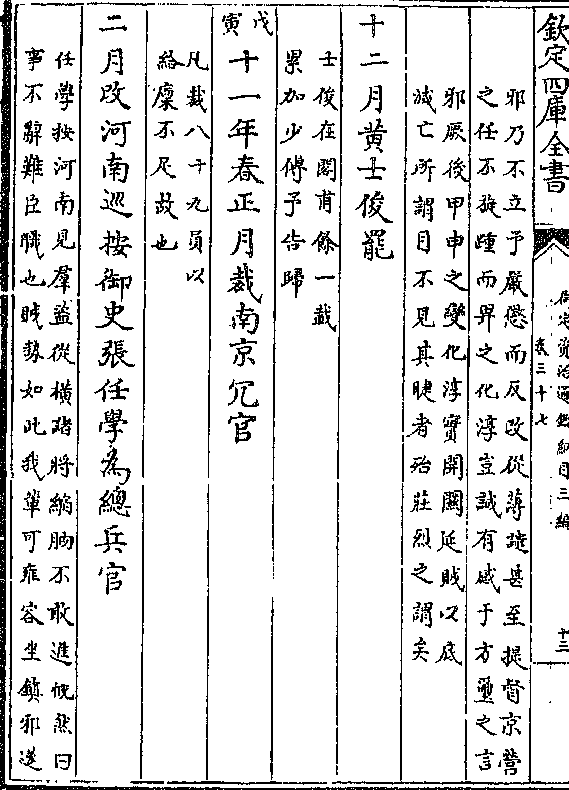 欽定四庫全書
御定資治通鑑綱目三編
卷三十七
十三
邪乃不立予嚴懲而反改從薄譴甚至提督京營
之任不旋踵而畀之化淳豈誠有感于方壐之言
邪厥後甲申之變化淳實開關延賊以底
滅亡所謂目不見其睫者殆莊烈之謂矣
十二月黄士俊罷
士俊在閣甫餘一載
累加少傅予告歸
戊寅十一年春正月裁南京冗官
凡裁八十九員以
給廩不足故也
二月改河南巡按御史張任學為總兵官
任學按河南見羣盜從横諸將縮朒不敢進慨然曰
事不辭難臣職也賊勢如此我輩可雍容坐鎮邪遂